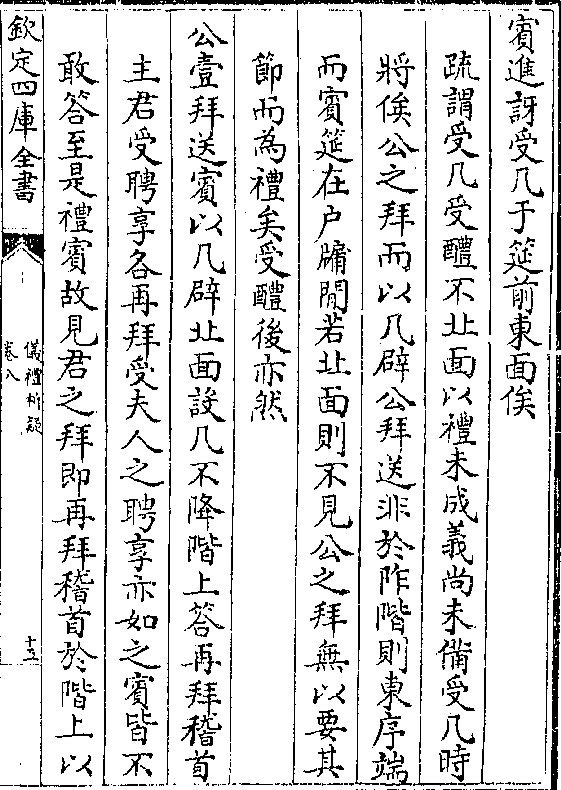 賓進訝受几于筵前東面俟
疏謂受几受醴不北面以禮未成義尚未備受几時
將俟公之拜而以几辟公拜送非於阼階則東序端
而賓筵在户牖閒若北面則不見公之拜無以要其
節而為禮矣受醴後亦然
公壹拜送賓以几辟北面設几不降階上答再拜稽首
主君受聘享各再拜受夫人之聘享亦如之賓皆不
敢答至是禮賓故見君之拜即再拜稽首於階上以
欽定四庫全書
儀禮析疑
卷八
十五